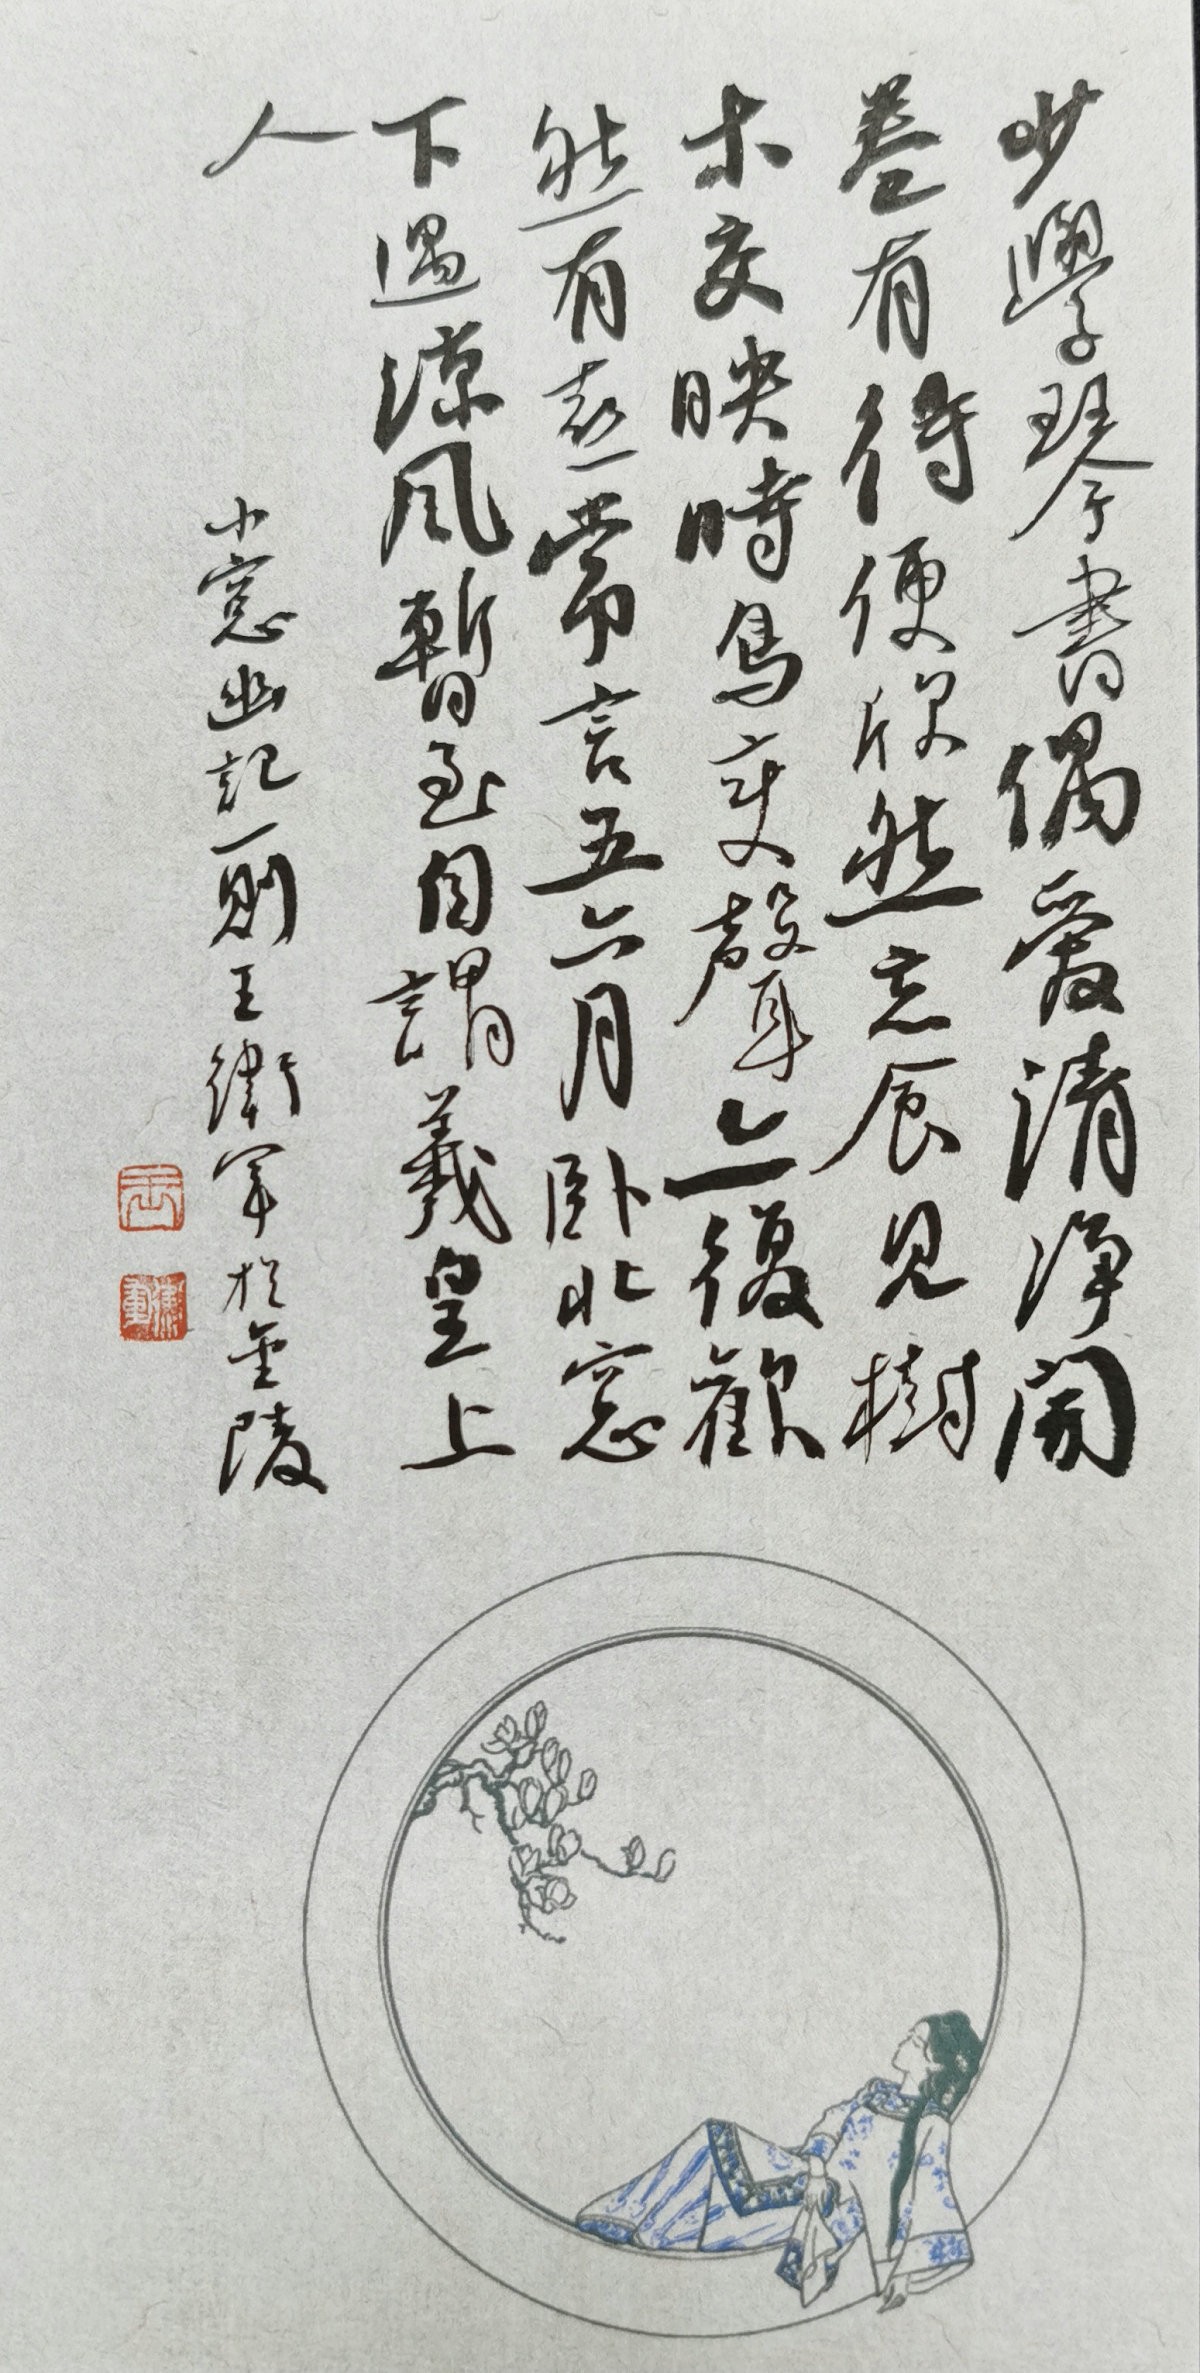 少學琴書偶愛清淨開
卷有得便欣然忘辰見樹
木交映時鳥变聲亦復歡
然有喜常言五六月臥北窓
下遇涼風暫至自謂羲皇上
人
小窓幽記一則王衛軍於金陵
王
衛軍